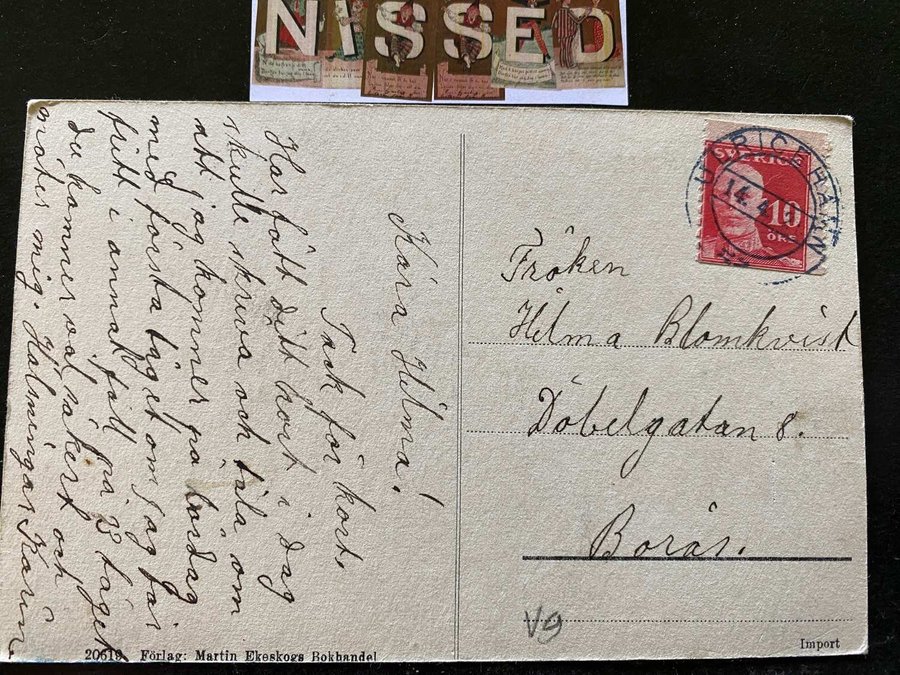 NISSED
Kära Hilma!
Tack för kort.
Har fått ditt kort i dag
skulle skriva och tala om
att jag kommer på lördag
med första tåget om jag får
fritt i annat fall på 23 tåget
du kommer väl säkert och
möter mig. Hälsningar Karin
20619 Förlag: Martin Ekeskogs Bokhandel
ULRICEHAMN
14. 4
SVERIGE
10
ÖRE
Fröken
Hilma Blomkvist
Döbelgatan 8.
Borås.
V9
Import